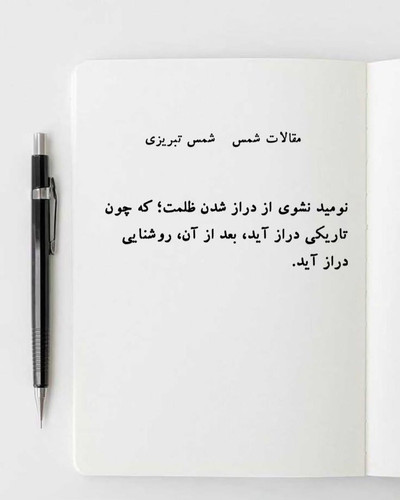 مقالات شمس شمس تبریزی
نومید نشوی از دراز شدن ظلمت؛ که چون
تاریکی دراز آید، بعد از آن، روشنایی
دراز آید.